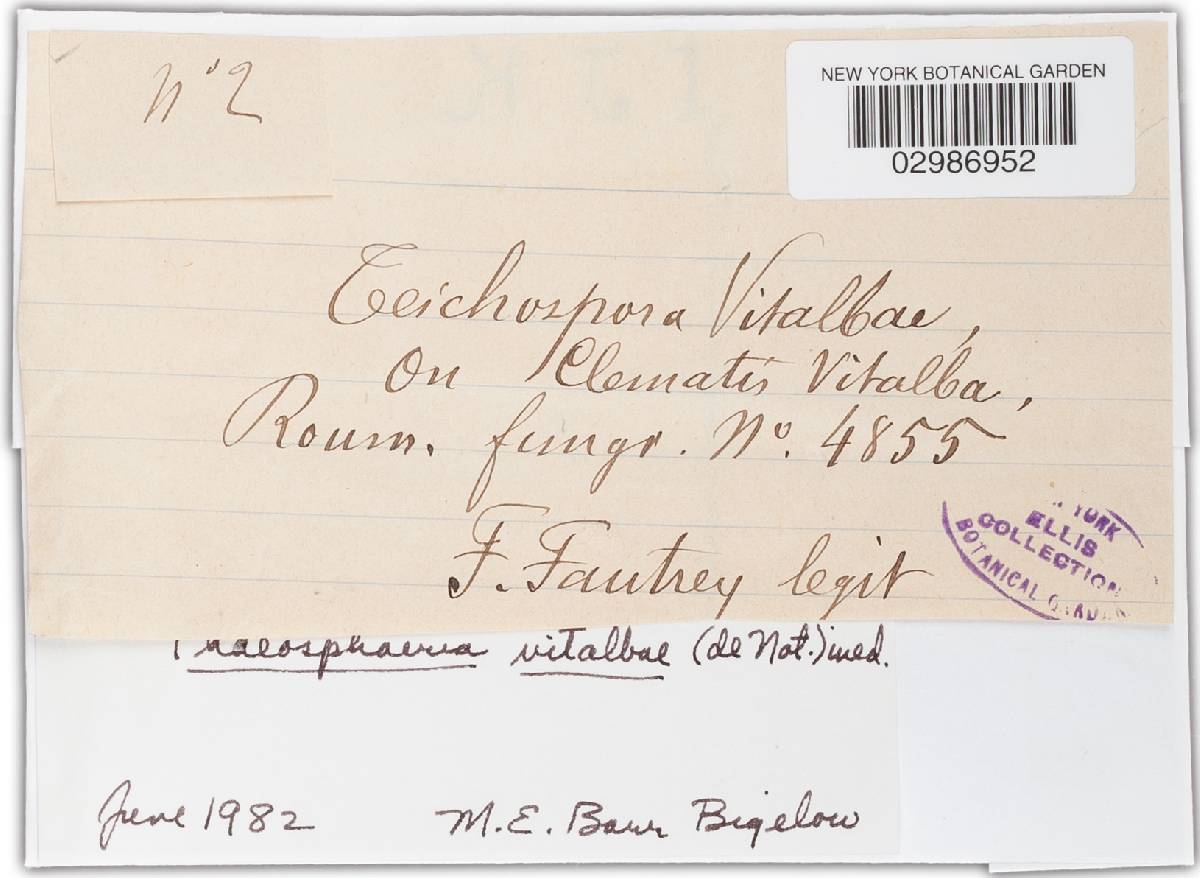 N° 2
NEW YORK BOTANICAL GARDEN
02986952
Teichospora Vitalbae,
On Clematis Vitalba,
Roum. fungi. No. 4855
F. Fautrey legit
YORK
ELLIS
COLLECTION
BOTANICAL GARDEN
Phaeosphaeria vitalbae (de Not.) ined.
June 1982 M. E. Barr Bigelow